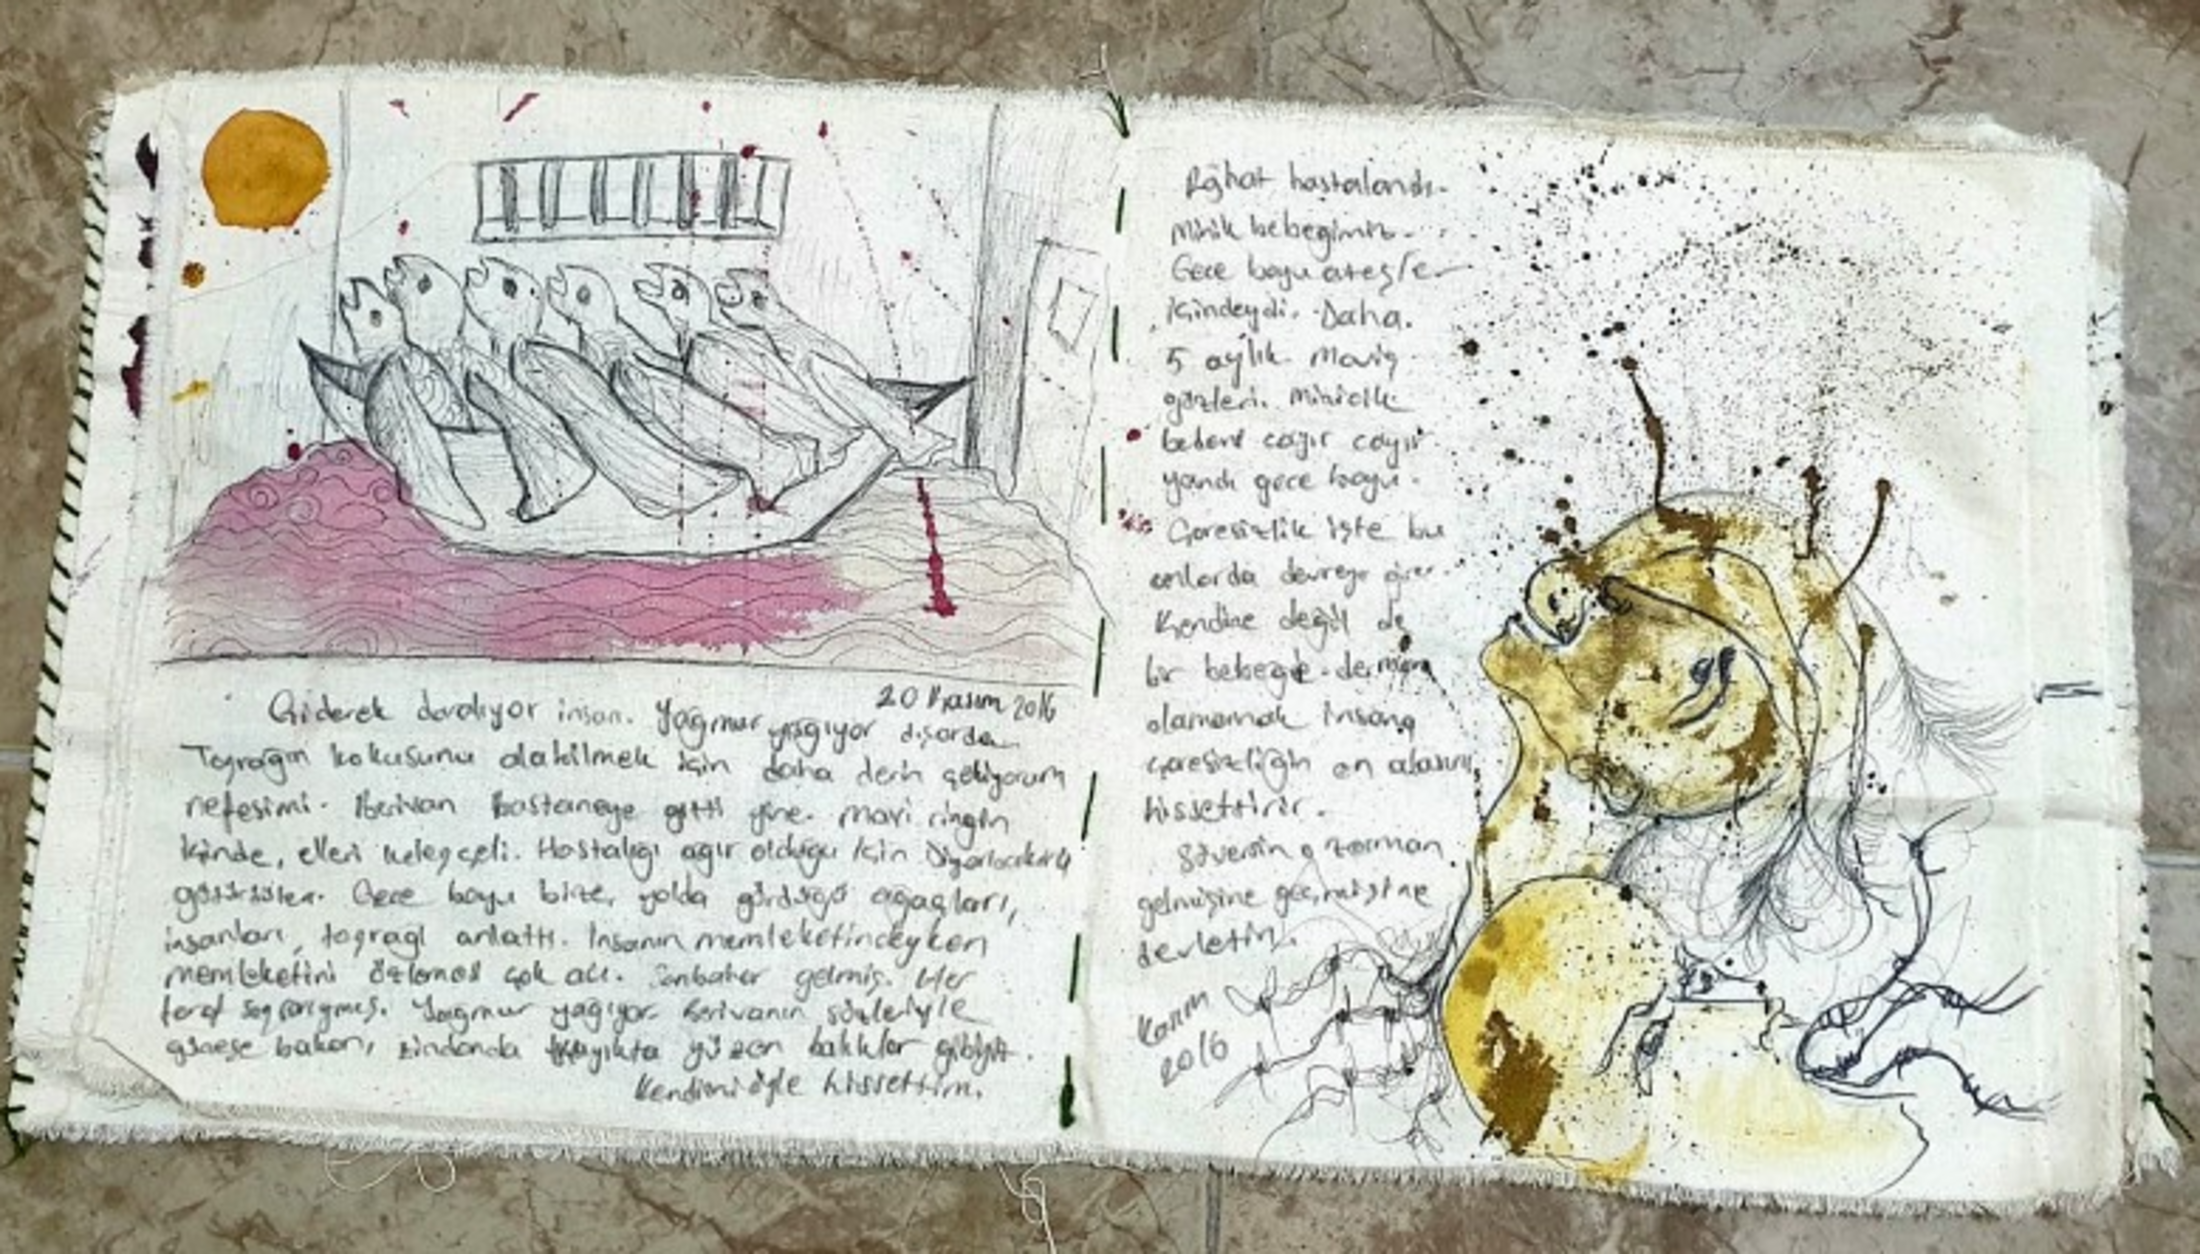 20 Kasım 2016
Giderek daralıyor insan. Yağmur yağıyor dışarda.
Toprağın kokusunu alabilmek için daha derin çekiyorum
nefesimi. Berivan hastaneye gitti yine. Mavi ringin
içinde, elleri kelepçeli. Hastalığı ağır olduğu için Diyarbakır'a
götürdüler. Gece boyu bize, yolda gördüğü ağaçları,
insanları, toprağı anlattı. İnsanın memleketindeyken
memleketini özlemesi çok acı. Sonbahar gelmiş. Her
taraf Yağmur yağıyor Berivanın sözleriyle
güneşe bakan, zindanda kayıkta yüzen balıklar gibiyiz.
Kendimi öyle hissettim.
hastalandı.
Minik bebeğimiz.
Gece boyu ateşler
içindeydi. Daha.
5 aylık Maviş
gözleri. Minicik
bedeni cayır cayır
yandı gece boyu.
Çaresizlik işte bu
anlarda devreye girer.
Kendine değil de
bir bebeğe derman
olamamak insana
çaresizliğin en alasını
hissettirir.
o zaman
gelmişine geçmişine
devletin.
Kasım
2016